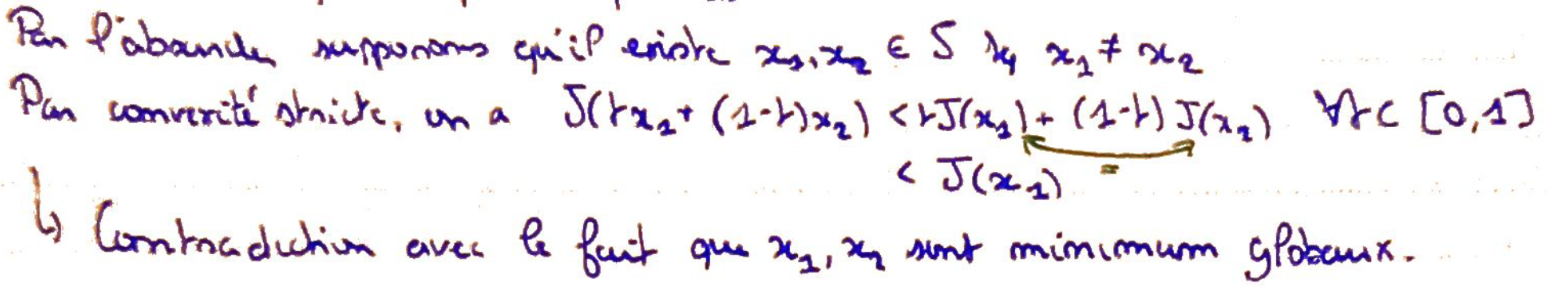 Par l'absurde, supposons qu'il existe x₁, x₂ ∈ S tq x₁ ≠ x₂
Par convexité stricte, on a J(tx₁ + (1-t)x₂) < tJ(x₁) + (1-t)J(x₂) ∀t ∈ [0,1]
=
< J(x₁)
↳ Contradiction avec le fait que x₁, x₂ sont minimum globaux.